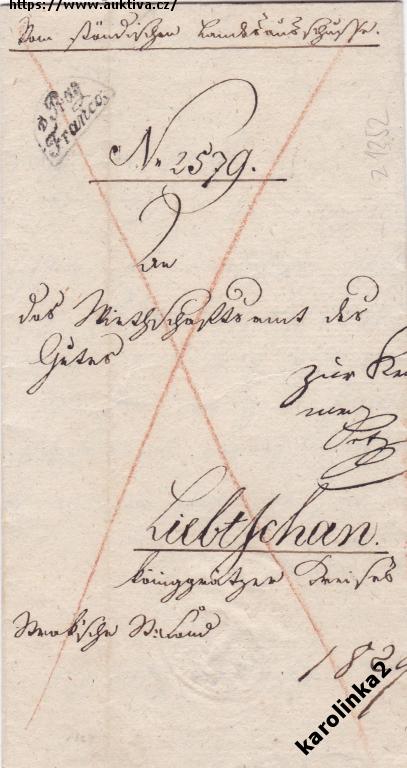 https://www.auktiva.cz/
Vom ständischen Landesausschusse.
Prag
Franco.
N. 2579.
z 1252
An
das Wirthschaftsamt des
Gutes
zur
Liebtschan.
Königgrätzer Kreises
karolinka2